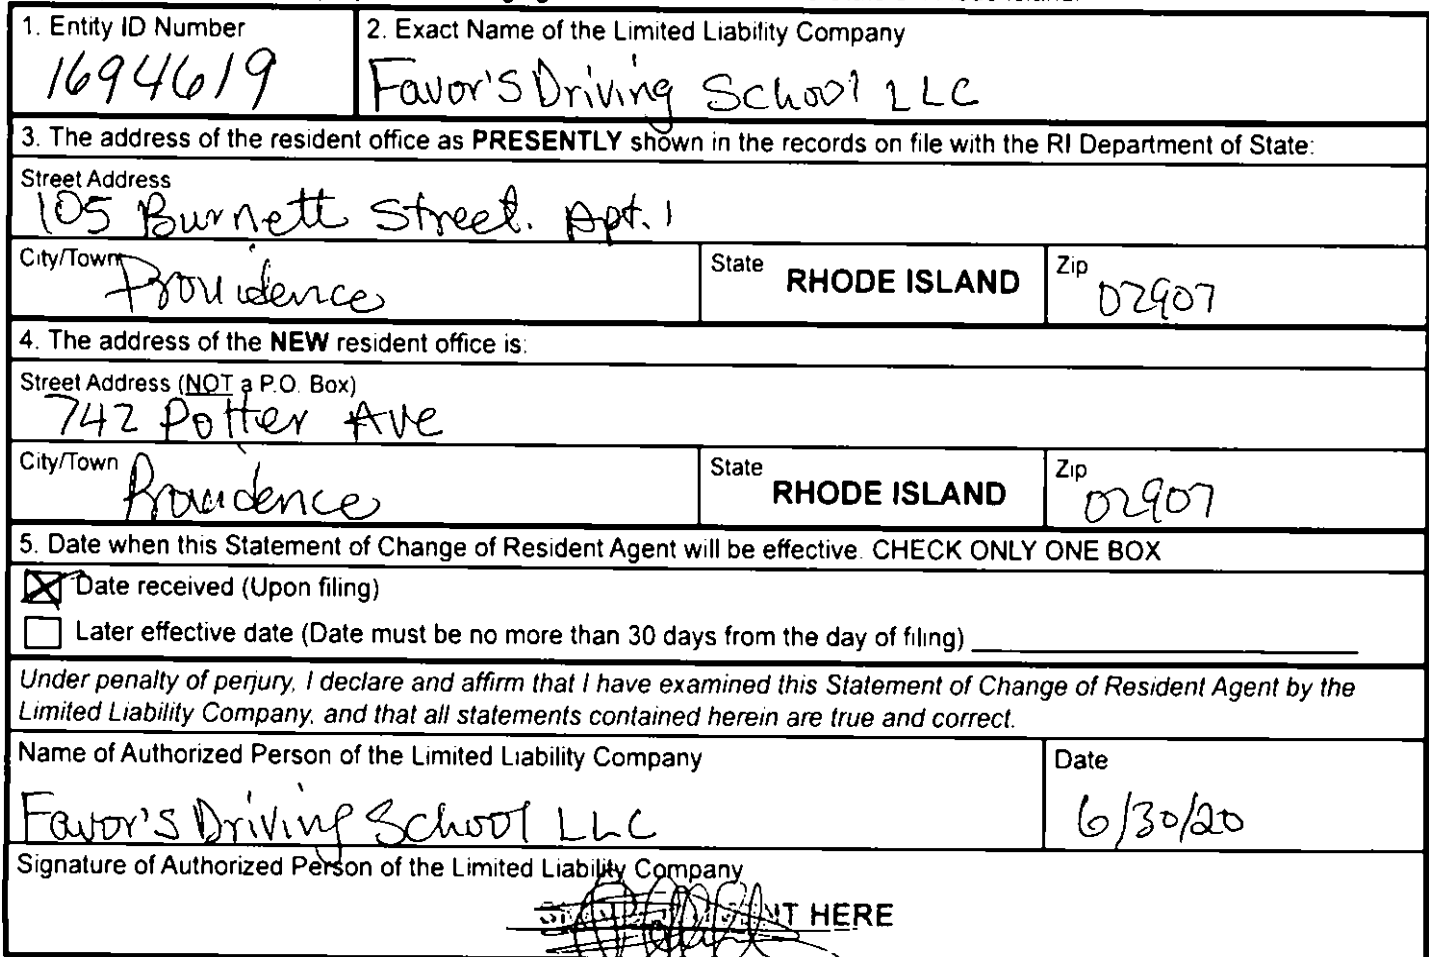 1. Entity ID Number
1694619
2. Exact Name of the Limited Liability Company
Favor's Driving School LLC
3. The address of the resident office as PRESENTLY shown in the records on file with the RI Department of State:
Street Address
105 Burnett Street. Apt. 1
City/Town
Providence
State RHODE ISLAND
Zip 02907
4. The address of the NEW resident office is:
Street Address (NOT a P.O. Box)
742 Potter Ave
City/Town
Providence
State RHODE ISLAND
Zip 02907
5. Date when this Statement of Change of Resident Agent will be effective. CHECK ONLY ONE BOX
Date received (Upon filing)
Later effective date (Date must be no more than 30 days from the day of filing)
Under penalty of perjury, I declare and affirm that I have examined this Statement of Change of Resident Agent by the
Limited Liability Company, and that all statements contained herein are true and correct.
Name of Authorized Person of the Limited Liability Company
Favor's Driving School LLC
Date
6/30/20
Signature of Authorized Person of the Limited Liability Company
HERE